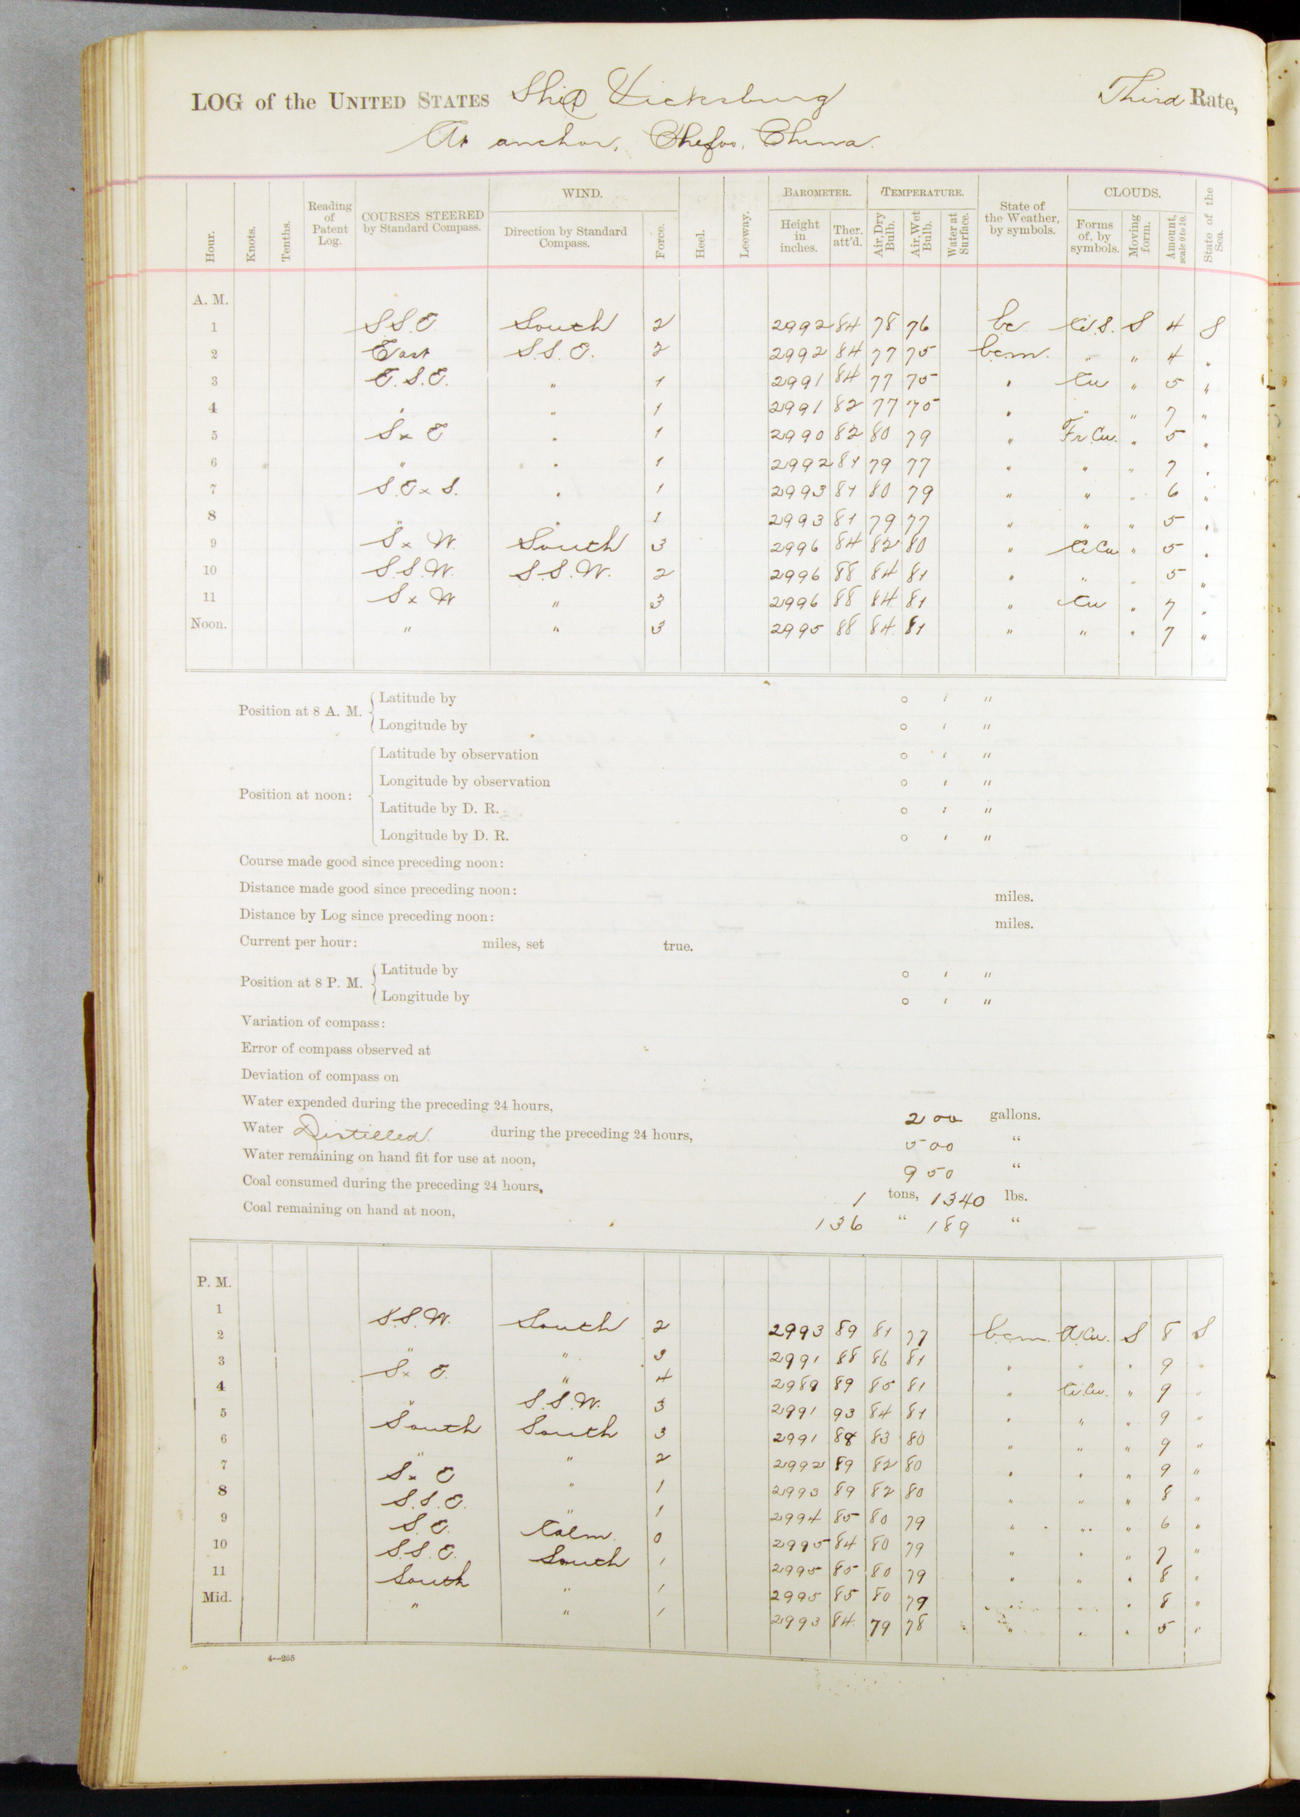 LOG of the UNITED STATES Ship Vicksburg Third Rate,
At anchor, Chefoo, China.
Hour. Knots. Tenths. Reading of Patent Log. COURSES STEERED by Standard Compass. WIND. Direction by Standard Compass. Force. Heel. Leeway. BAROMETER. Height in inches. Ther. att'd. TEMPERATURE. Air, Dry Bulb. Air, Wet Bulb. Water at Surface. State of the Weather, by symbols. CLOUDS. Forms of, by symbols. Moving form. Amount, scale 0 to 10. State of the Sea.
A. M.
1 S.S.E. South 2 2992 84 78 76 bc Ci.S. S 4 S
2 East S.S.E. 2 2992 84 77 75 bcm. " " 4 "
3 E.S.E. " 1 2991 84 77 75 " Cu " 5 "
4 " " 1 2991 82 77 75 " " " 7 "
5 S x E " 1 2990 82 80 79 " Fr.Cu. " 5 "
6 " " 1 2992 81 79 77 " " " 7 "
7 S.E x S. " 1 2993 81 80 79 " " " 6 "
8 " " 1 2993 81 79 77 " " " 5 "
9 S x W. South 3 2996 84 82 80 " Ci.Cu " 5 "
10 S.S.W. S.S.W. 2 2996 88 84 81 " " " 5 "
11 S x W " 3 2996 88 84 81 " Cu " 7 "
Noon. " " 3 2995 88 84 81 " " " 7 "
Position at 8 A. M. Latitude by ° ′ ″
Longitude by ° ′ ″
Position at noon: Latitude by observation ° ′ ″
Longitude by observation ° ′ ″
Latitude by D. R. ° ′ ″
Longitude by D. R. ° ′ ″
Course made good since preceding noon:
Distance made good since preceding noon: miles.
Distance by Log since preceding noon: miles.
Current per hour: miles, set true.
Position at 8 P. M. Latitude by ° ′ ″
Longitude by ° ′ ″
Variation of compass:
Error of compass observed at
Deviation of compass on
Water expended during the preceding 24 hours, 200 gallons.
Water Distilled during the preceding 24 hours, 500 "
Water remaining on hand fit for use at noon, 950 "
Coal consumed during the preceding 24 hours, 1 tons, 1340 lbs.
Coal remaining on hand at noon, 136 " 189 "
P. M.
1 S.S.W. South 2 2993 89 81 77 bcm. Ci.Cu. S 8 S
2 " " 3 2991 88 86 81 " " " 9 "
3 S x E. " 4 2989 89 85 81 " Ci.Cu. " 9 "
4 " S.S.W. 3 2991 93 84 81 " " " 9 "
5 South South 3 2991 88 83 80 " " " 9 "
6 " " 2 2992 89 82 80 " " " 9 "
7 S x E " 1 2993 89 82 80 " " " 8 "
8 S.S.E. " 1 2994 85 80 79 " " " 6 "
9 S.E. Calm. 0 2995 84 80 79 " " " 7 "
10 S.S.E. South 1 2995 85 80 79 " " " 8 "
11 South " 1 2995 85 80 79 " " " 8 "
Mid. " " 1 2993 84 79 78 " " " 5 "
4—265